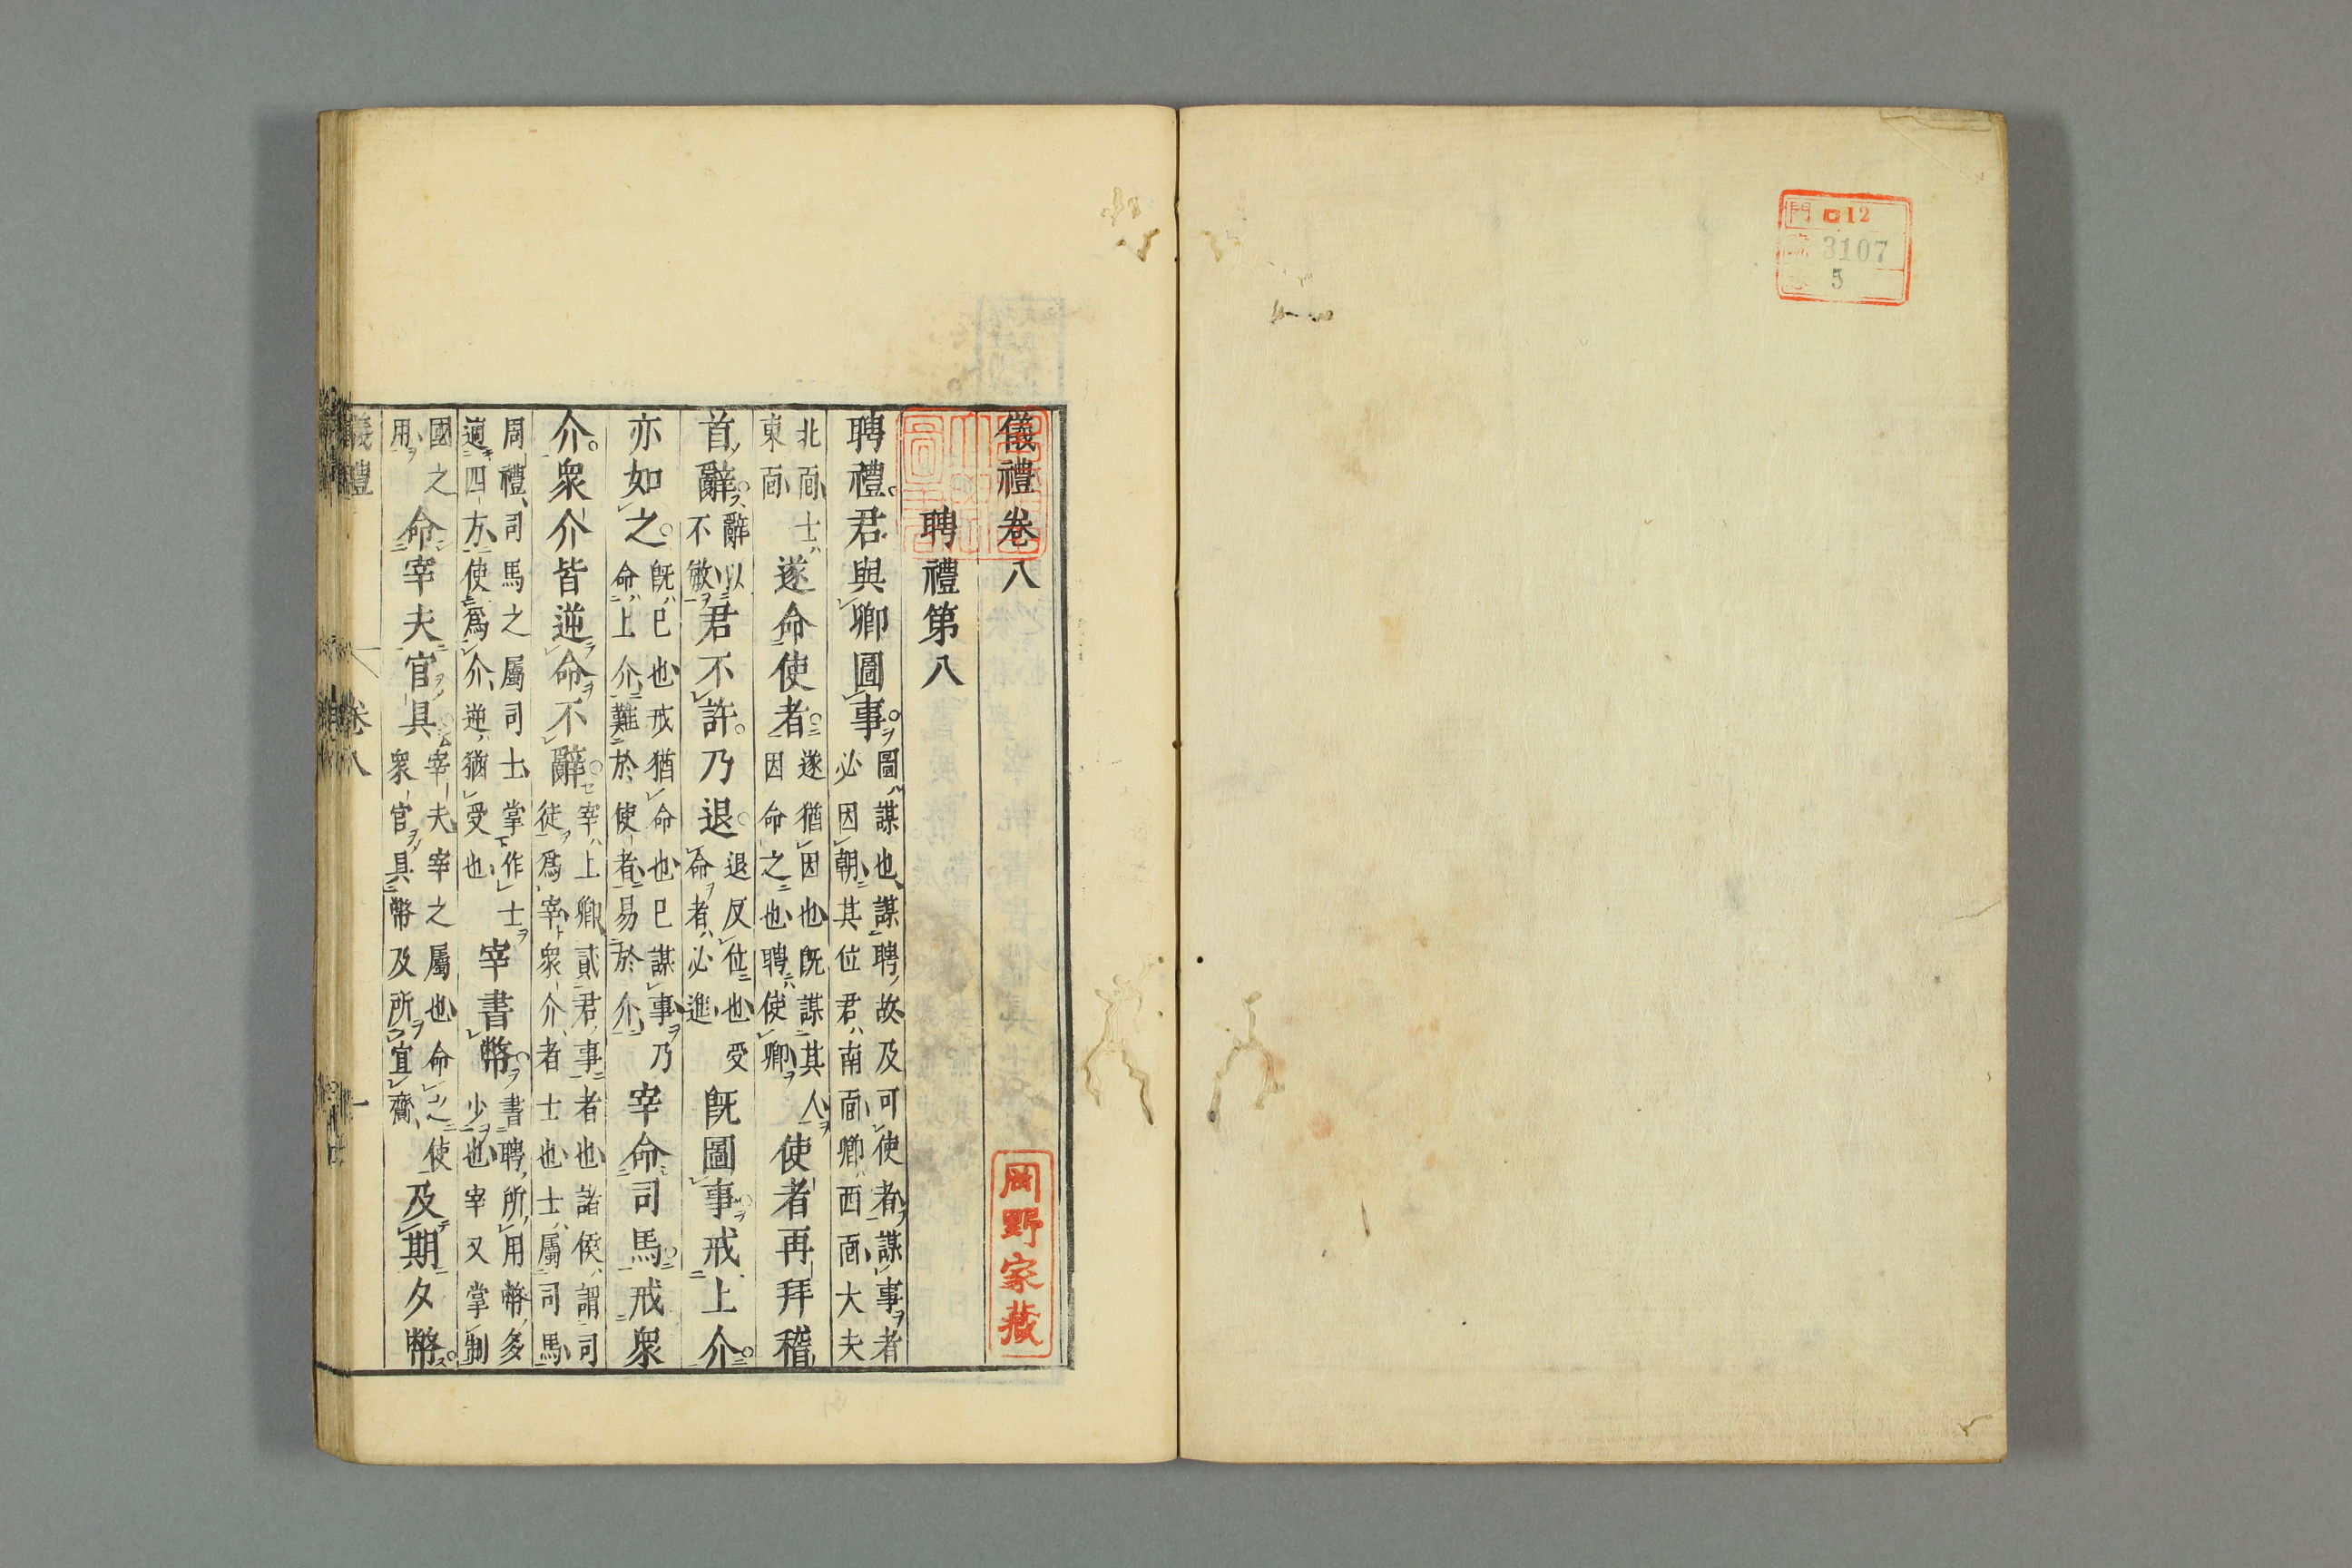 門 ロ12
號 3107
卷 5
儀禮卷八
岡野家藏
聘禮第八
聘禮。君與卿圖事。圖謀也謀聘故及可使者謀事者必因朝其位君南面卿西面大夫
北面士東面遂命使者。遂猶因也既謀其人因命之也聘使卿使者再拜稽
首辭。辭以不敏君不許。乃退。退反位也受命者必進既圖事。戒上介。
亦如之。既已也戒猶命也已謀事乃命上介難於使者易於介宰命司馬。戒衆
介。衆介皆逆命不辭。宰上卿貳君事者也諸侯謂司徒爲宰衆介者士也士屬司馬
周禮司馬之屬司士掌作士適四方使爲介逆猶受也宰書幣。書聘所用幣多少也宰又掌制
國之用命宰夫官具。宰夫宰之屬也命之使衆官具幣及所宜齎及期夕幣。
儀禮 卷八 一